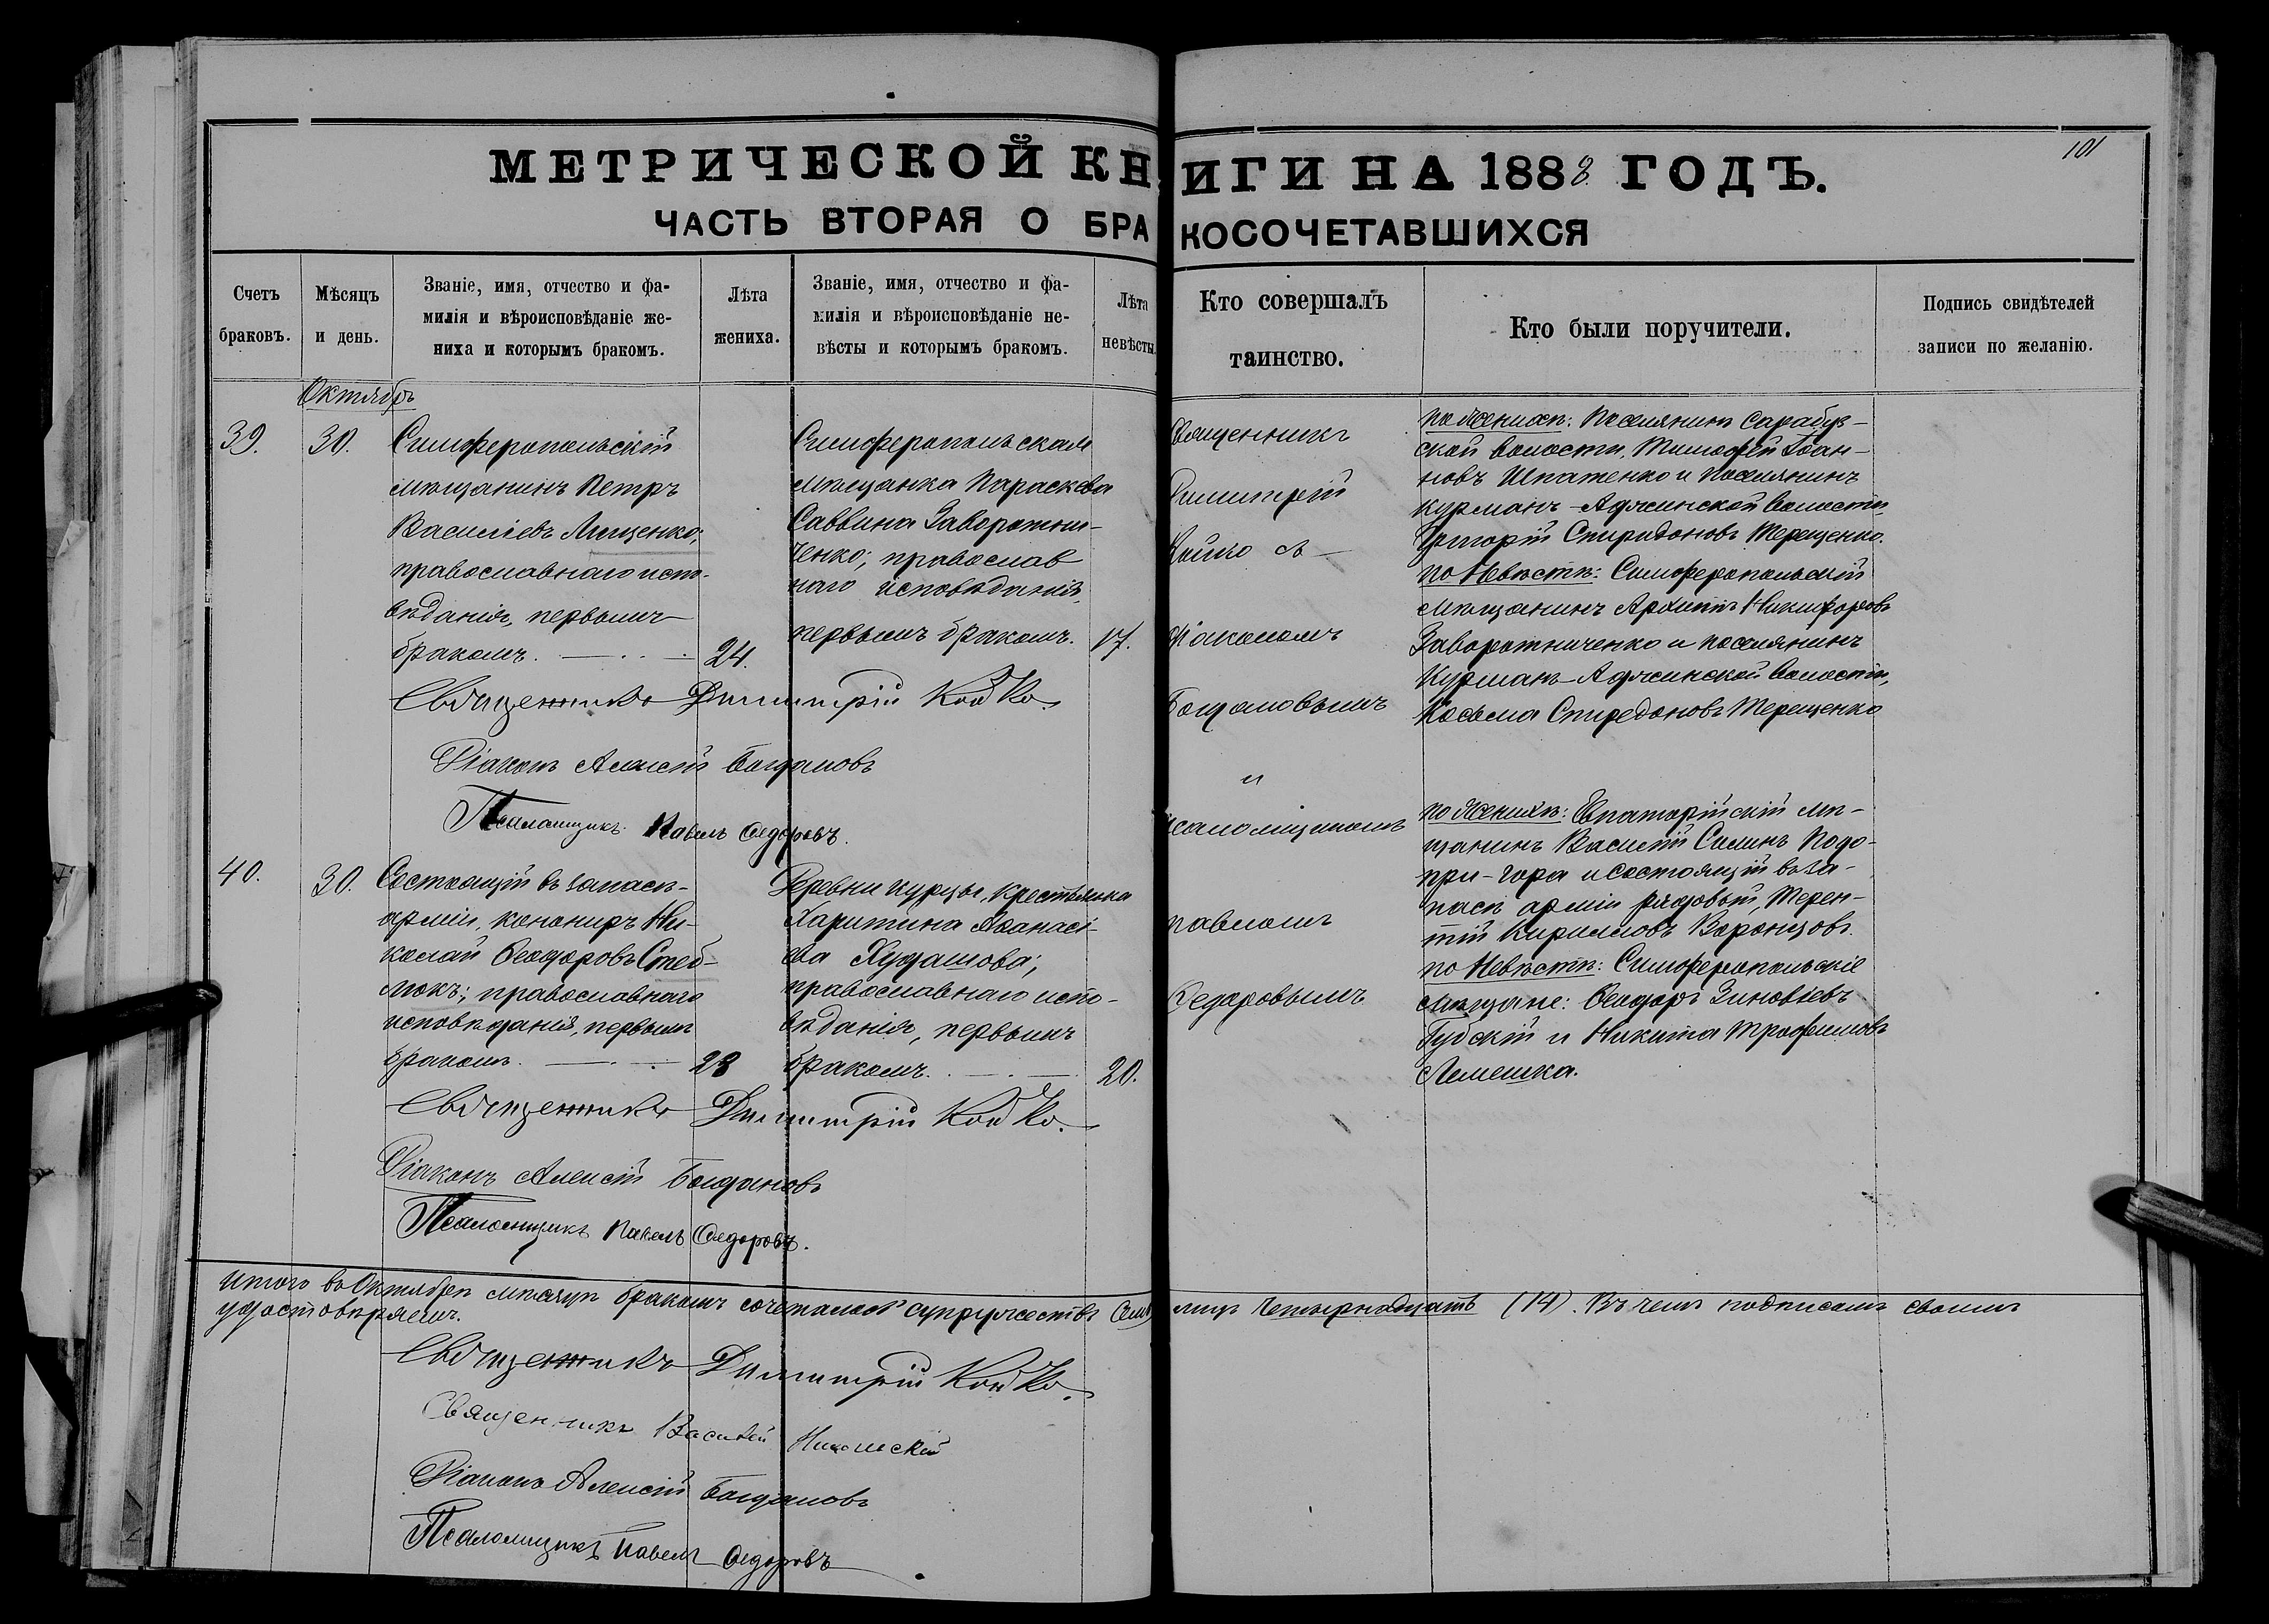 101
МЕТРИЧЕСКОЙ КНИГИ НА 1888 ГОДЪ.
ЧАСТЬ ВТОРАЯ О БРАКОСОЧЕТАВШИХСЯ
Счетъ
браковъ.
Мѣсяцъ
и день.
Званіе, имя, отчество и фа-
милія и вѣроисповѣданіе же-
ниха и которымъ бракомъ.
Лѣта
жениха.
Званіе, имя, отчество и фа-
милія и вѣроисповѣданіе не-
вѣсты и которымъ бракомъ.
Лѣта
невѣсты.
Кто совершалъ
таинство.
Кто были поручители.
Подпись свидѣтелей
записи по желанію.
Октябрь
39.
30.
Симферопольскій
мѣщанинъ Петръ
Василіевъ Лященко;
православнаго испо-
вѣданія, первымъ
бракомъ.
24.
Симферопольская
мѣщанка Параскева
Саввина Заворотни-
ченко; православ
наго исповѣданія,
первымъ бракомъ.
17.
Священникъ
Димитрій
Койко съ
Діакономъ
Богдановымъ
и
Псаломщикомъ
Павломъ
Ѳедоровымъ
по Женихѣ: Поселянинъ Сарабуз-
ской волости, Тимофей Іоан-
новъ Шпатенко и поселянинъ
Курманъ-Аджинской волости
Григорій Спиридоновъ Терещенко.
по Невѣстѣ: Симферопольскій
мѣщанинъ Архипъ Никифоровъ
Заворотниченко и поселянинъ
Курманъ-Аджинской волости,
Косьма Спиредоновъ Терещенко
Священникъ Димитрій Койко.
Діаконъ Алексій Богдановъ
Псаломщикъ Павелъ Ѳедоровъ.
40.
30.
Состоящій въ запасѣ
арміи, канониръ Ни-
колай Ѳеодоровъ Стеб-
локъ; православнаго
исповѣданія, первымъ
бракомъ.
28
Деревни Курцы, крестьянка
Харитина Аѳанасі-
ева Худашова;
православнаго испо-
вѣданія, первымъ
бракомъ.
20.
по Женихѣ: Евпаторійскій мѣ-
щанинъ Василій Силинъ Подо-
при-гора и состоящій въ за-
пасѣ арміи рядовой, Терен-
тій Кирилловъ Воронцовъ.
по Невѣстѣ: Симферопольскіе
мѣщане: Ѳеодоръ Зиновіевъ
Губскій и Никита Трофимовъ
Лемешка.
Священникъ Димитрій Койко.
Діаконъ Алексій Богдановъ
Псаломщикъ Павелъ Ѳедоровъ.
Итого въ Октябрѣ мѣсяцѣ бракомъ сочеталось супружествъ лицъ четырнадцать (14). Въ чемъ подписомъ своимъ
удостовѣряемъ.
Священникъ Димитрій Койко.
Священникъ Василій Никольскій
Діаконъ Алексій Богдановъ
Псаломщикъ Павелъ Ѳедоровъ